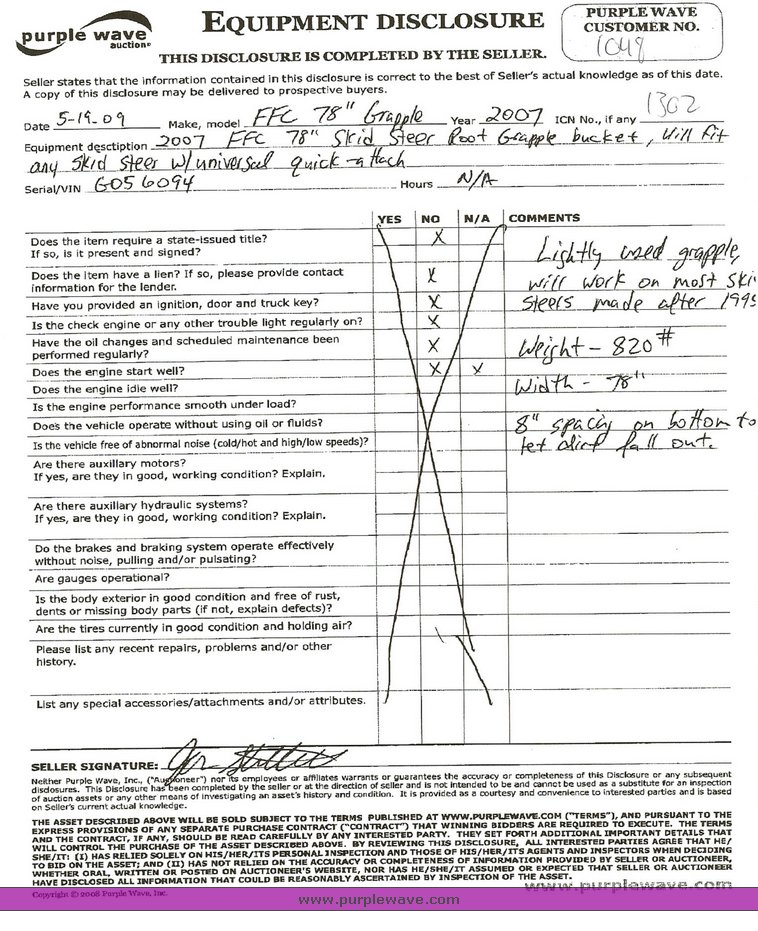 purple wave
auction®
EQUIPMENT DISCLOSURE
THIS DISCLOSURE IS COMPLETED BY THE SELLER.
PURPLE WAVE
CUSTOMER NO.
1048
Seller states that the information contained in this disclosure is correct to the best of Seller's actual knowledge as of this date.
A copy of this disclosure may be delivered to prospective buyers.
Date 5-19-09 Make, model FFC 78" Grapple Year 2007 ICN No., if any 1302
Equipment desctiption 2007 FFC 78" Skid Steer Root Grapple bucket, Will fit
any skid steer w/universal quick-attach
Serial/VIN G056094 Hours N/A
YES NO N/A COMMENTS
Does the item require a state-issued title? X
If so, is it present and signed?
Does the item have a lien? If so, please provide contact X
information for the lender.
Have you provided an ignition, door and truck key? X
Is the check engine or any other trouble light regularly on? X
Have the oil changes and scheduled maintenance been X
performed regularly?
Does the engine start well? X X
Does the engine idle well?
Is the engine performance smooth under load?
Does the vehicle operate without using oil or fluids?
Is the vehicle free of abnormal noise (cold/hot and high/low speeds)?
Are there auxillary motors?
If yes, are they in good, working condition? Explain.
Are there auxillary hydraulic systems?
If yes, are they in good, working condition? Explain.
Do the brakes and braking system operate effectively
without noise, pulling and/or pulsating?
Are gauges operational?
Is the body exterior in good condition and free of rust,
dents or missing body parts (if not, explain defects)?
Are the tires currently in good condition and holding air?
Please list any recent repairs, problems and/or other
history.
List any special accessories/attachments and/or attributes.
Lightly used grapple,
will work on most ski
steers made after 199
Weight - 820#
Width - 78"
8" spacing on bottom to
let dirt fall out.
SELLER SIGNATURE:
Neither Purple Wave, Inc., ("Auctioneer") nor its employees or affiliates warrants or guarantees the accuracy or completeness of this Disclosure or any subsequent
disclosures. This Disclosure has been completed by the seller or at the direction of seller and is not intended to be and cannot be used as a substitute for an inspection
of auction assets or any other means of investigating an asset's history and condition. It is provided as a courtesy and convenience to interested parties and is based
on Seller's current actual knowledge.
THE ASSET DESCRIBED ABOVE WILL BE SOLD SUBJECT TO THE TERMS PUBLISHED AT WWW.PURPLEWAVE.COM ("TERMS"), AND PURSUANT TO THE
EXPRESS PROVISIONS OF ANY SEPARATE PURCHASE CONTRACT ("CONTRACT") THAT WINNING BIDDERS ARE REQUIRED TO EXECUTE. THE TERMS
AND THE CONTRACT, IF ANY, SHOULD BE READ CAREFULLY BY ANY INTERESTED PARTY. THEY SET FORTH ADDITIONAL IMPORTANT DETAILS THAT
WILL CONTROL THE PURCHASE OF THE ASSET DESCRIBED ABOVE. BY REVIEWING THIS DISCLOSURE, ALL INTERESTED PARTIES AGREE THAT HE/
SHE/IT: (I) HAS RELIED SOLELY ON HIS/HER/ITS PERSONAL INSPECTION AND THOSE OF HIS/HER/ITS AGENTS AND INSPECTORS WHEN DECIDING
TO BID ON THE ASSET; AND (II) HAS NOT RELIED ON THE ACCURACY OR COMPLETENESS OF INFORMATION PROVIDED BY SELLER OR AUCTIONEER,
WHETHER ORAL, WRITTEN OR POSTED ON AUCTIONEER'S WEBSITE, NOR HAS HE/SHE/IT ASSUMED OR EXPECTED THAT SELLER OR AUCTIONEER
HAVE DISCLOSED ALL INFORMATION THAT COULD BE REASONABLY ASCERTAINED BY INSPECTION OF THE ASSET.
www.purplewave.com
Copyright © 2008 Purple Wave, Inc.
www.purplewave.com